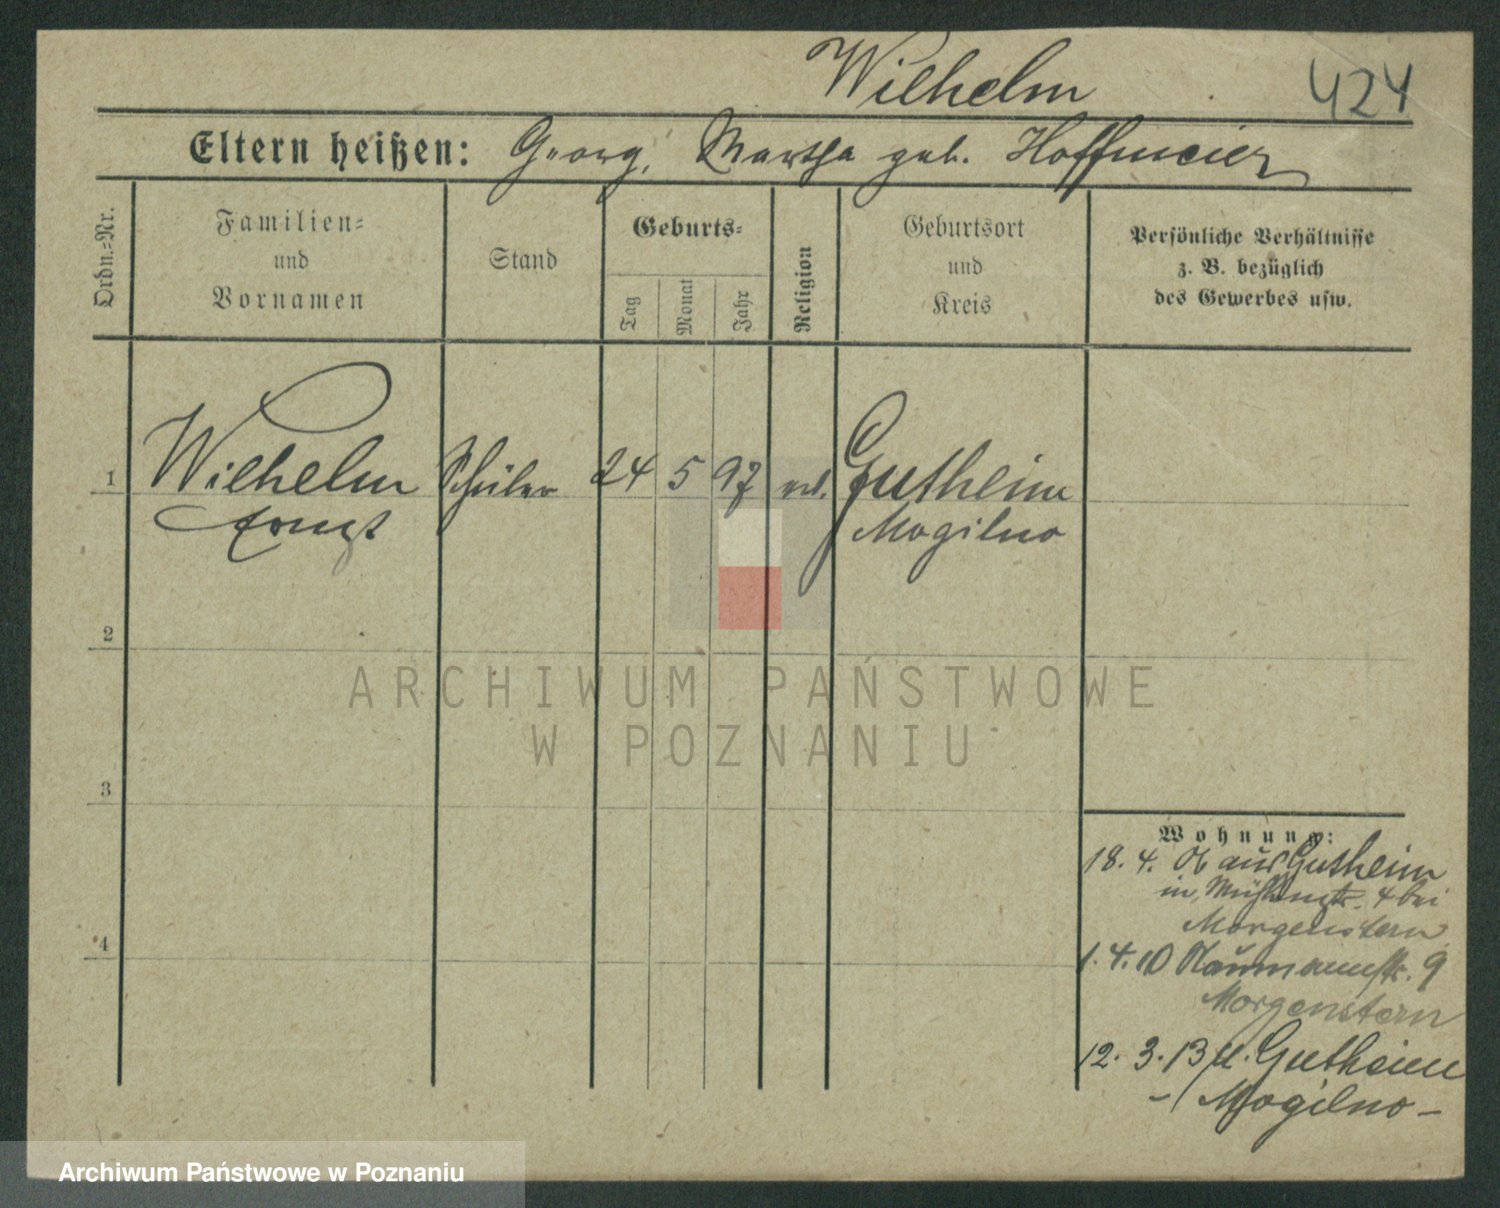 Wilhelm
424
Eltern heißen: Georg, Martha geb. Hoffmeier
Ordn.=Nr.
Familien=
und
Vornamen
Stand
Geburts=
Tag
Monat
Jahr
Religion
Geburtsort
und
Kreis
Persönliche Verhältnisse
z. B. bezüglich
des Gewerbes usw.
1 Wilhelm Schüler 24 5 97 Gutheim
Ernst Mogilno
2
ARCHIWUM PAŃSTWOWE
W POZNANIU
3
4
Wohnung:
18. 4. 06 aus Gutheim
in Mühlenstr. 4 bei
Morgenstern
1. 4. 10 Naumannstr. 9
Morgenstern
12. 3. 13 n. Gutheim
- Mogilno -
Archiwum Państwowe w Poznaniu